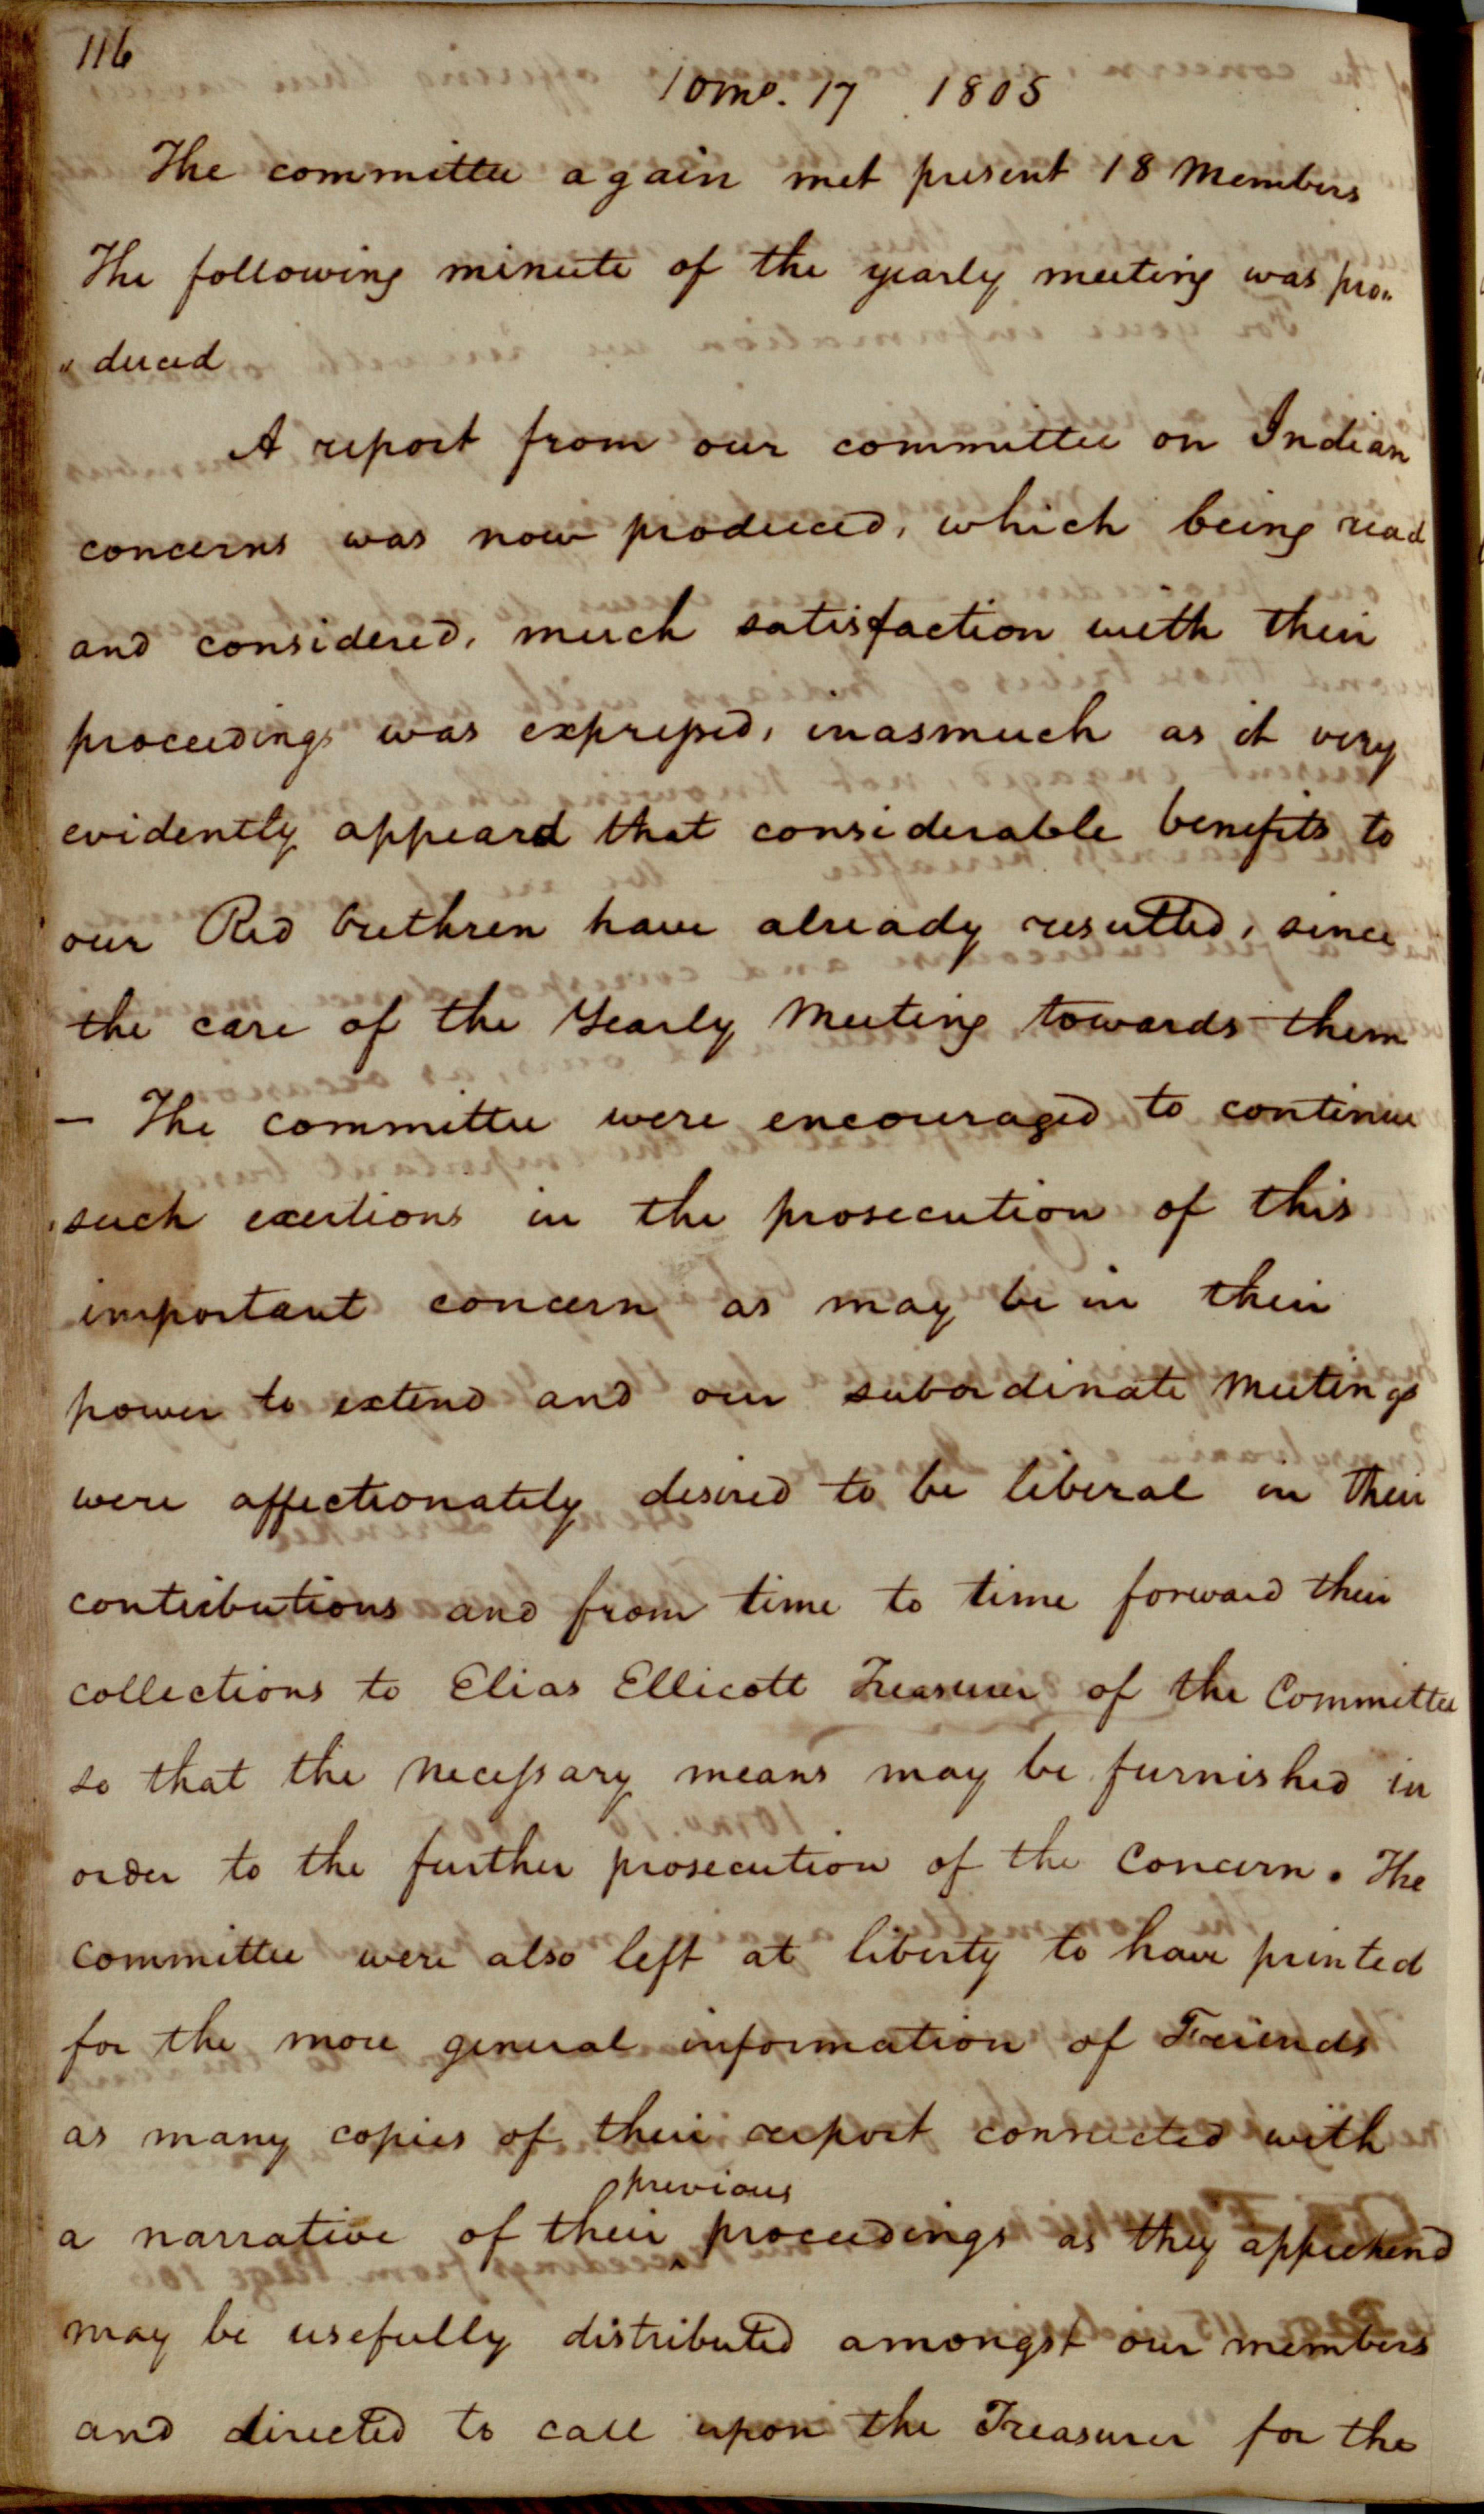 116
10mo. 17 1805
The committee again met present 18 Members
The following minute of the yearly meeting was pro„
„duced
A report from our committee on Indian
concerns was now produced, which being read
and considered, much satisfaction with their
proceedings was expressed, inasmuch as it very
evidently appeard that considerable benefits to
our Red brethren have already resulted, since
the care of the Yearly Meeting towards them
— The committee were encouraged to continue
such exertions in the prosecution of this
important concern as may be in their
power to extend and our subordinate Meetings
were affectionately desired to be liberal in their
contributions and from time to time forward their
collections to Elias Ellicott Treasurer of the Committee
so that the necessary means may be furnished in
order to the further prosecution of the Concern. The
committee were also left at liberty to have printed
for the more general information of Friends
as many copies of their report connected with
a narrative of their ^previous proceedings as they apprehend
may be usefully distributed amongst our members
and directed to call upon the Treasurer for the